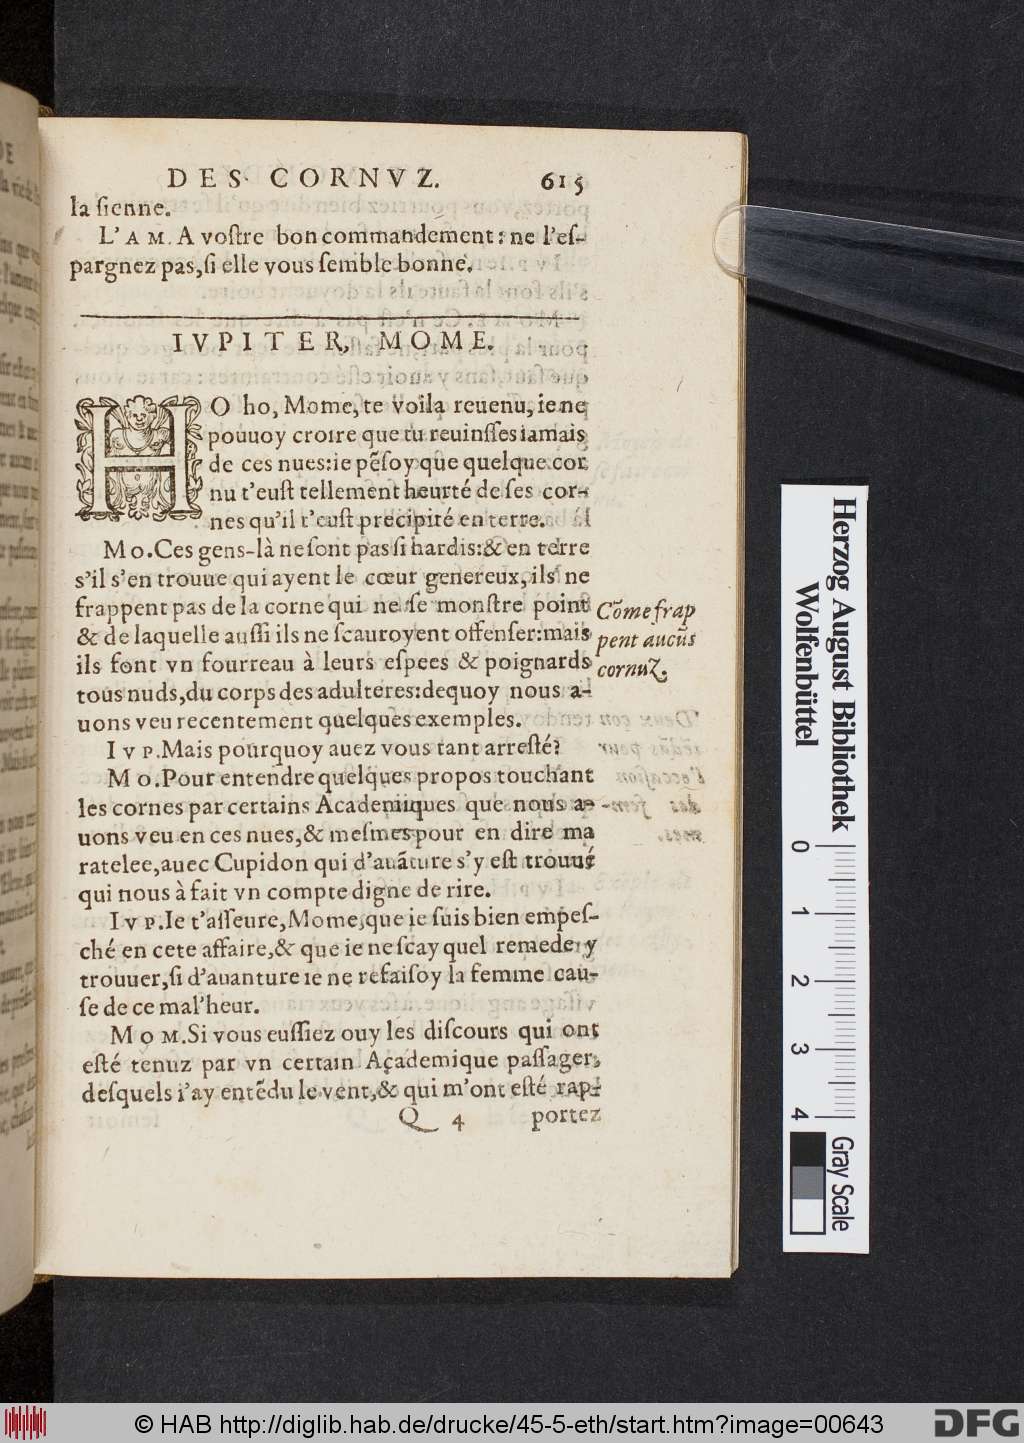 DES CORNVZ. 615
la ſienne.
L'AM. A voſtre bon commandement: ne l'eſ-
pargnez pas, ſi elle vous ſemble bonne.
IVPITER, MOME.
HO ho, Mome, te voila reuenu, ie ne
pouuoy croire que tu reuinſſes iamais
de ces nues: ie pẽſoy que quelque cor
nu t'euſt tellement heurté de ſes cor-
nes qu'il t'euſt precipité en terre.
MO. Ces gens-là ne ſont pas ſi hardis: & en terre
s'il s'en trouue qui ayent le cœur genereux, ils ne
frappent pas de la corne qui ne ſe monſtre point
& de laquelle auſſi ils ne ſcauroyent offenſer: mais
ils font vn fourreau à leurs eſpees & poignards
tous nuds, du corps des adulteres: dequoy nous a-
uons veu recentement quelques exemples.
Cõme frap
pent aucũs
cornuz.
IVP. Mais pourquoy auez vous tant arreſté?
MO. Pour entendre quelques propos touchant
les cornes par certains Academiques que nous a-
uons veu en ces nues, & meſmes pour en dire ma
ratelee, auec Cupidon qui d'auãture s'y eſt trouué
qui nous à fait vn compte digne de rire.
IVP. Ie t'aſſeure, Mome, que ie ſuis bien empeſ-
ché en cete affaire, & que ie ne ſcay quel remede y
trouuer, ſi d'auanture ie ne refaiſoy la femme cau-
ſe de ce mal'heur.
MOM. Si vous euſſiez ouy les diſcours qui ont
eſté tenuz par vn certain Academique paſſager,
deſquels i'ay entẽdu le vent, & qui m'ont eſté rap-
Q 4 portez
Herzog August Bibliothek
Wolfenbüttel
0 1 2 3 4
Gray Scale
© HAB http://diglib.hab.de/drucke/45-5-eth/start.htm?image=00643
DFG